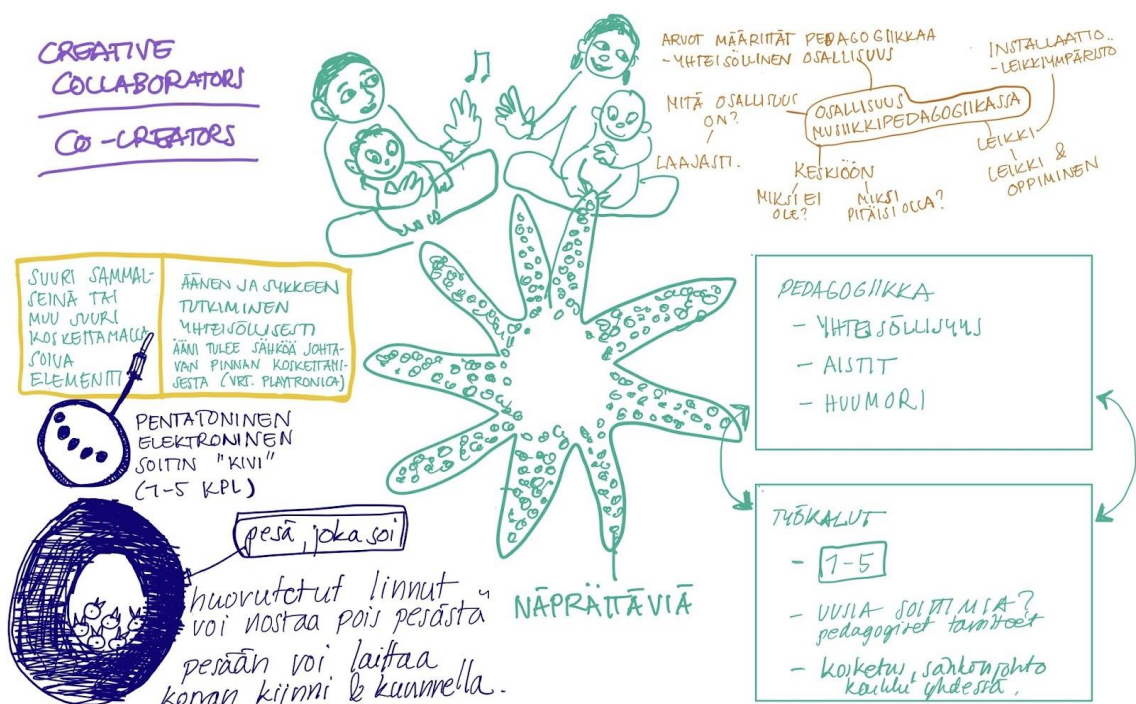 CREATIVE
COLLABORATORS
CO-CREATORS
ARVOT MÄÄRITTÄT PEDAGOGIIKKAA
- YHTEISÖLLINEN OSALLISUUS
INSTALLAATIO..
- LEIKKIYMPÄRISTÖ
MITÄ OSALLISUUS
ON?
LAAJASTI.
OSALLISUUS
MUSIIKKIPEDAGOGIIKASSA
KESKIÖÖN
MIKSI EI
OLE?
MIKSI
PITÄISI OLLA?
LEIKKI
LEIKKI &
OPPIMINEN
SUURI SAMMAL-
SEINÄ TAI
MUU SUURI
KOSKETTAMALLA
SOIVA
ELEMENTTI
ÄÄNEN JA SYKKEEN
TUTKIMINEN
YHTEISÖLLISESTI
ÄÄNI TULEE SÄHKÖÄ JOHTA-
VAN PINNAN KOSKETTAMI-
SESTA (VRT. PLAYTRONICA)
PENTATONINEN
ELEKTRONINEN
SOITIN "KIVI"
(1-5 KPL)
pesä, joka soi
huovutetut linnut
voi nostaa pois pesästä
pesään voi laittaa
korvan kiinni & kuunnella.
NÄPRÄTTÄVIÄ
PEDAGOGIIKKA
- YHTEISÖLLISYYS
- AISTIT
- HUUMORI
TYÖKALUT
- 1-5
- UUSIA SOITTIMIA?
pedagogiset tavoitteet
- kosketus, sähkönjohto
kaikki yhdessä.